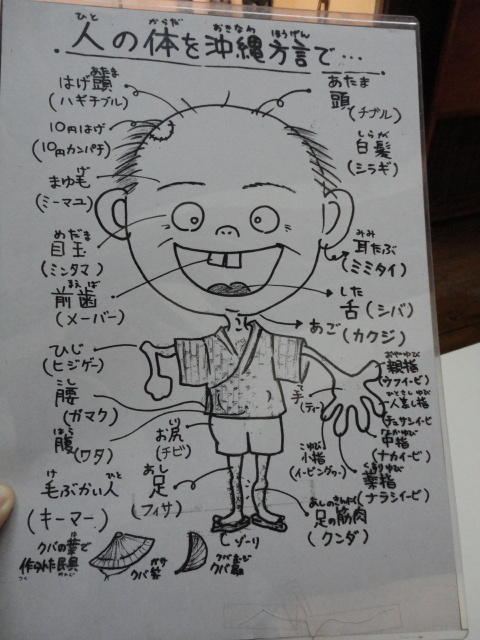 人の体を沖縄方言で…
はげ頭
(ハギチブル)
10円はげ
(10円カンパチ)
まゆ毛
(ミーマユ)
目玉
(ミンタマ)
前歯
(メーバー)
ひじ
(ヒジゲー)
腰
(ガマク)
腹
(ワタ)
毛ぶかい人
(キーマー)
お尻
(チビ)
足
(フィサ)
あたま
頭
(チブル)
しらが
白髪
(シラギ)
みみ
耳たぶ
(ミミタイ)
した
舌(シバ)
あご(カクジ)
手
(ティー)
こゆび
小指
(イービングヮー)
おやゆび
親指
(ウフイービ)
ひとさしゆび
人差し指
(チュサシイービ)
なかゆび
中指
(ナカイービ)
くすりゆび
薬指
(ナラシイービ)
あしのきんにく
足の筋肉
(クンダ)
ゾーリ
クバの葉で
作られた民具
クバ笠
クバ扇